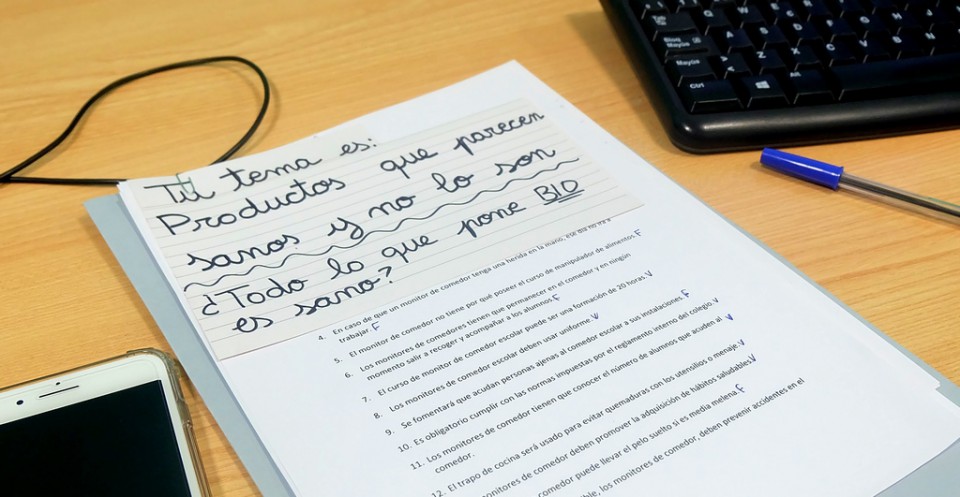 Tú tema es:
Productos que parecen
sanos y no lo son
¿Todo lo que pone BIO
es sano?
4. En caso de que un monitor de comedor tenga una herida en la mano, ese día no irá a
trabajar F
5. El monitor de comedor no tiene por qué poseer el curso de manipulador de alimentos F
6. Los monitores de comedores tienen que permanecer en el comedor y en ningún
momento salir a recoger y acompañar a los alumnos F
7. El curso de monitor de comedor escolar puede ser una formación de 20 horas V
8. Los monitores de comedor escolar deben usar uniforme V
9. Se fomentará que acudan personas ajenas al comedor escolar a sus instalaciones F
10. Es obligatorio cumplir con las normas impuestas por el reglamento interno del colegio V
11. Los monitores de comedor tienen que conocer el número de alumnos que acuden al
comedor. V
12. El trapo de cocina será usado para evitar quemaduras con los utensilios o menaje V
monitores de comedor deben promover la adquisición de hábitos saludables V
comedor puede llevar el pelo suelto si es media melena F
los monitores de comedor, deben prevenir accidentes en el
Bloq
Mayús
Mayús
Ctrl
Alt
Q W E R A S D F Z X C V